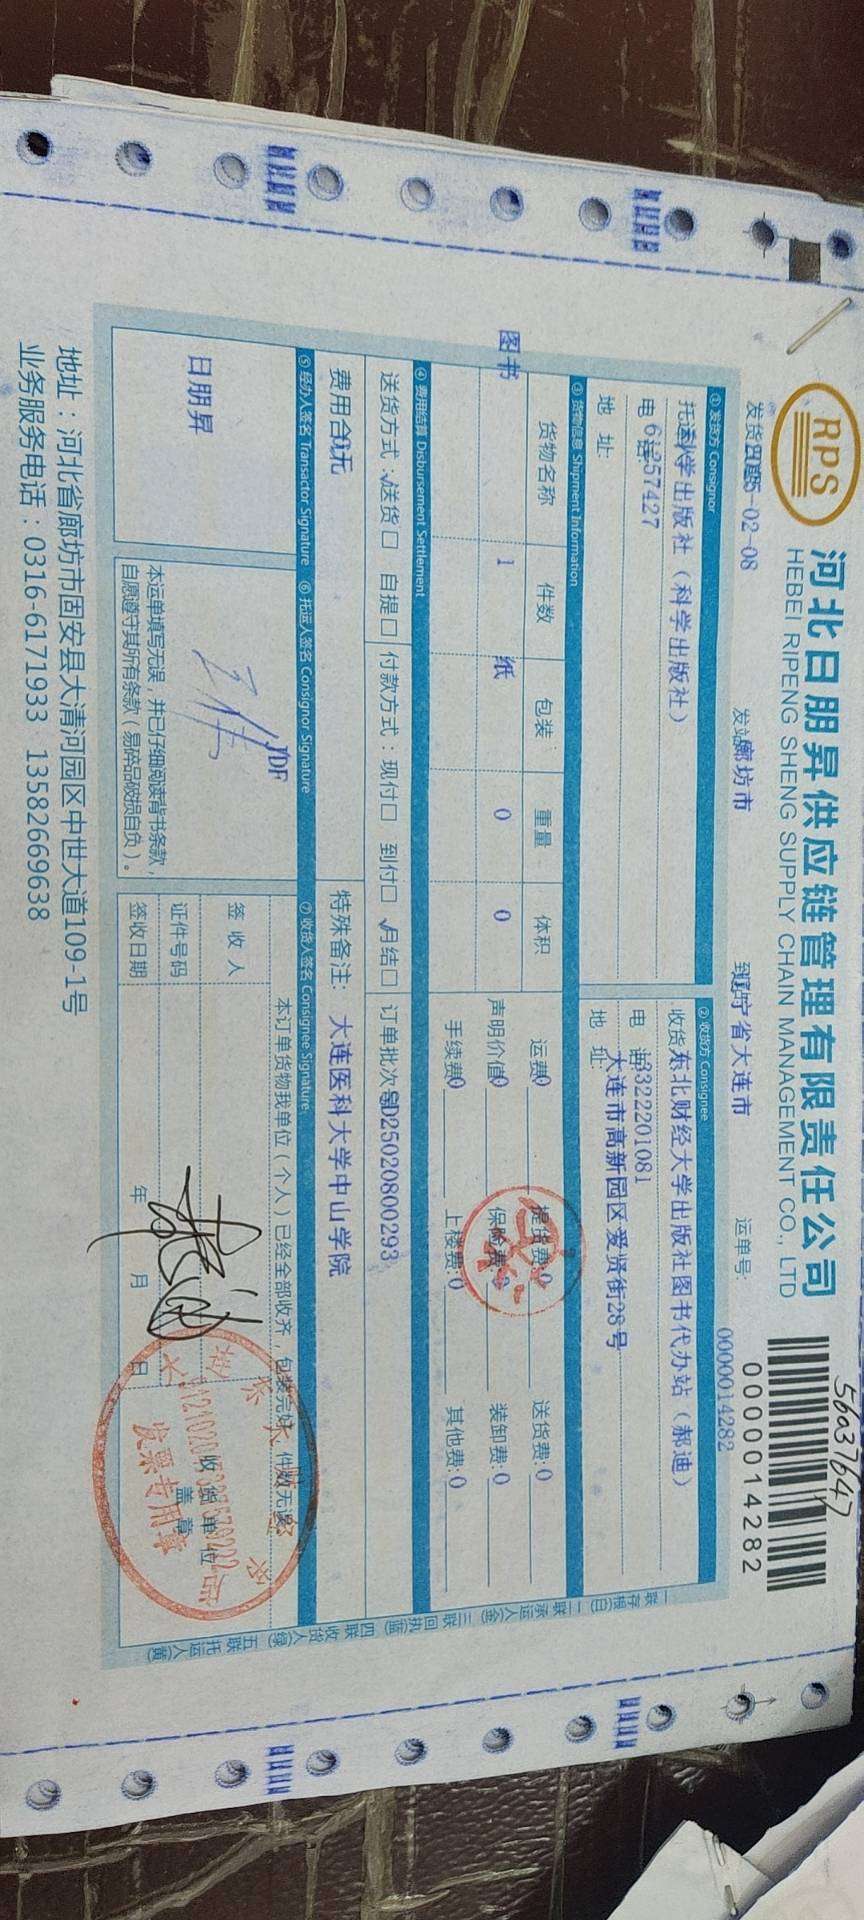 56037647
RPS
河北日朋昇供应链管理有限责任公司
HEBEI RIPENG SHENG SUPPLY CHAIN MANAGEMENT CO., LTD
0000014282
发货日期 2025-02-08
发站 廊坊市
到站 辽宁省大连市
运单号: 0000014282
① 发货方 Consignor
② 收货方 Consignee
科学出版社（科学出版社）
收货 东北财经大学出版社图书代办站（郝迪）
电 话: 61257427
电 话: 13322201081
地 址:
地 址: 大连市高新园区爱贤街28号
③ 货物信息 Shipment Information
货物名称 件数 包装 重量 体积
图书 1 纸 0 0
运费:0 提货费:0 送货费:0
声明价值:0 保险费:0 装卸费:0
手续费:0 上楼费:0 其他费:0
④ 费用结算 Disbursement Settlement
送货方式:√送货□ 自提□ 付款方式:现付□ 到付□ √月结□ 订单批次号 SD25020800293
费用合计 0元
特殊备注: 大连医科大学中山学院
⑤ 经办人签名 Transactor Signature
⑥ 托运人签名 Consignor Signature
⑦ 收货人签名 Consignee Signature:
日朋昇
JDF
本运单填写无误，并已仔细阅读背书条款，
自愿遵守其所有条款(易碎品破损自负)。
本订单货物我单位(个人)已经全部收齐，包装完好，件数无误
签 收 人
证件号码
签收日期 年 月 日
收货单位
盖章
发票专用章
一联存根(白) 二联承运人(金) 三联回执(蓝) 四联收货人(绿) 五联托运人(黄)
地址：河北省廊坊市固安县大清河园区中世大道109-1号
业务服务电话：0316-6171933 13582669638